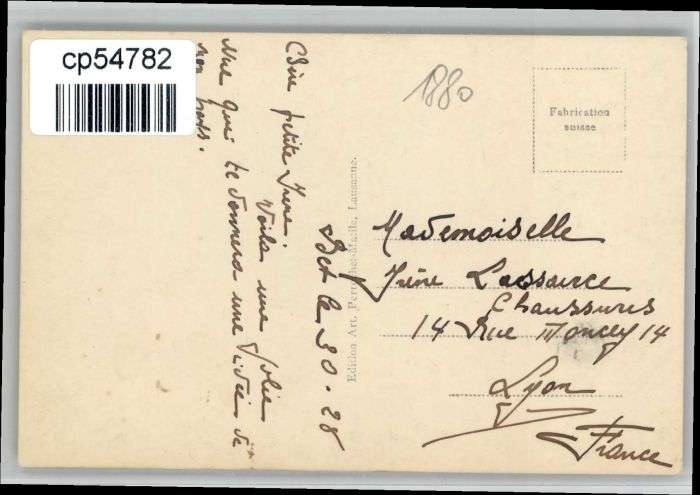 cp54782
1880
Fabrication
suisse
Bex le 30.28
Chère petite Irène.
Voila une jolie
vue qui te donnera une idée de
nos pays.
Edition Art. Lausanne.
Mademoiselle
Irène Lassarce
Chaussures
14 Rue Moncey 14
Lyon
France